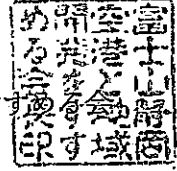 富士山静岡
空港と地域
開発をすす
める会印